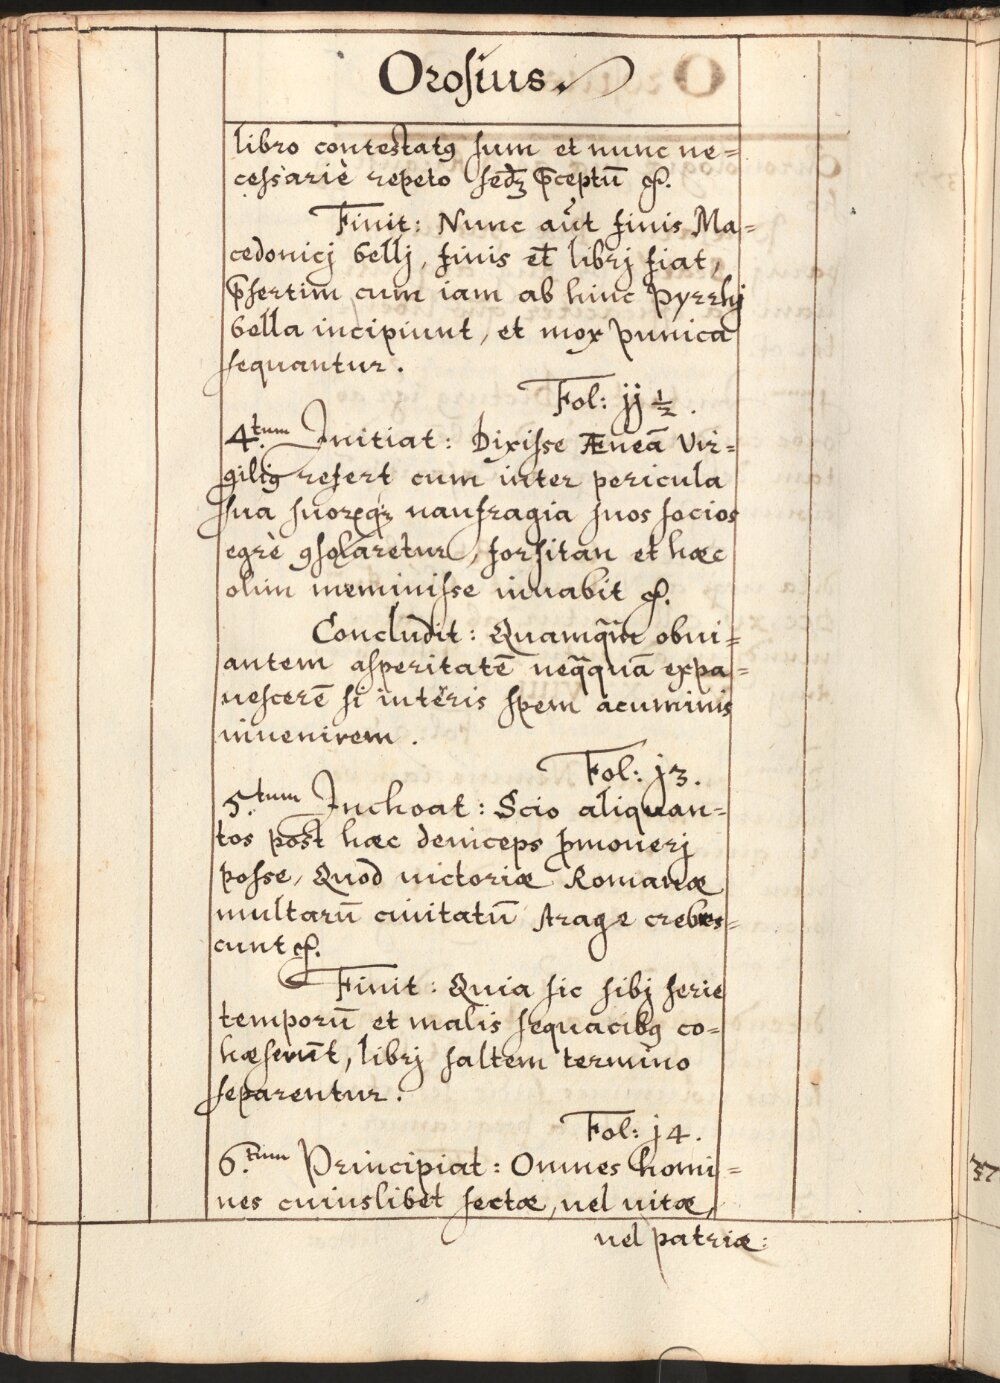 Orosius.
libro contestatꝰ sum et nunc ne=
cessariè repeto sedꝫ p̄ceptū &.
Finit: Nunc aut̄ finis Ma=
cedonicj bellj, finis et librj fiat,
p̄sertim cum iam ab hinc Pyrrhj
bella incipiunt, et mox punica
sequantur.
Fol: jj ½.
4.tum Initiat: Dixisse Æneā Vir=
giliꝰ refert cum inter pericula
sua suorꝫqꝫ naufragia suos socios
egrè ꝯsolaretur, forsitan et hæc
olim meminisse iuuabit &.
Concludit: Quamquā obui=
antem asperitatē neq̄quā expa=
uescerē si interis spem acuminis
inuenirem.
Fol: j3.
5.tum Inchoat: Scio aliquan=
tos post hæc deniceps p̄mouerj
posse, Quod uictoriæ Romanæ
multarū ciuitatū strage crebres=
cunt &.
Finit: Quia sic sibj serie
temporū et malis sequacibꝰ co=
hæserunt, librj saltem termino
separentur.
Fol: j4.
6.tum Principiat: Omnes homi=
nes cuiuslibet sectæ, uel uitæ,
uel patriæ: